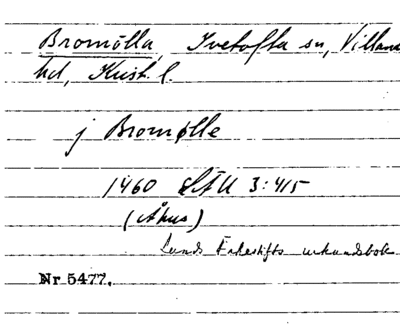 Bromölla, Ivetofta sn, Villands
hd, Krist. l.
j Bromølle
1460 LÄU 3:415
(Åhus)
Lunds Ärkestifts urkundsbok
Nr 5477.